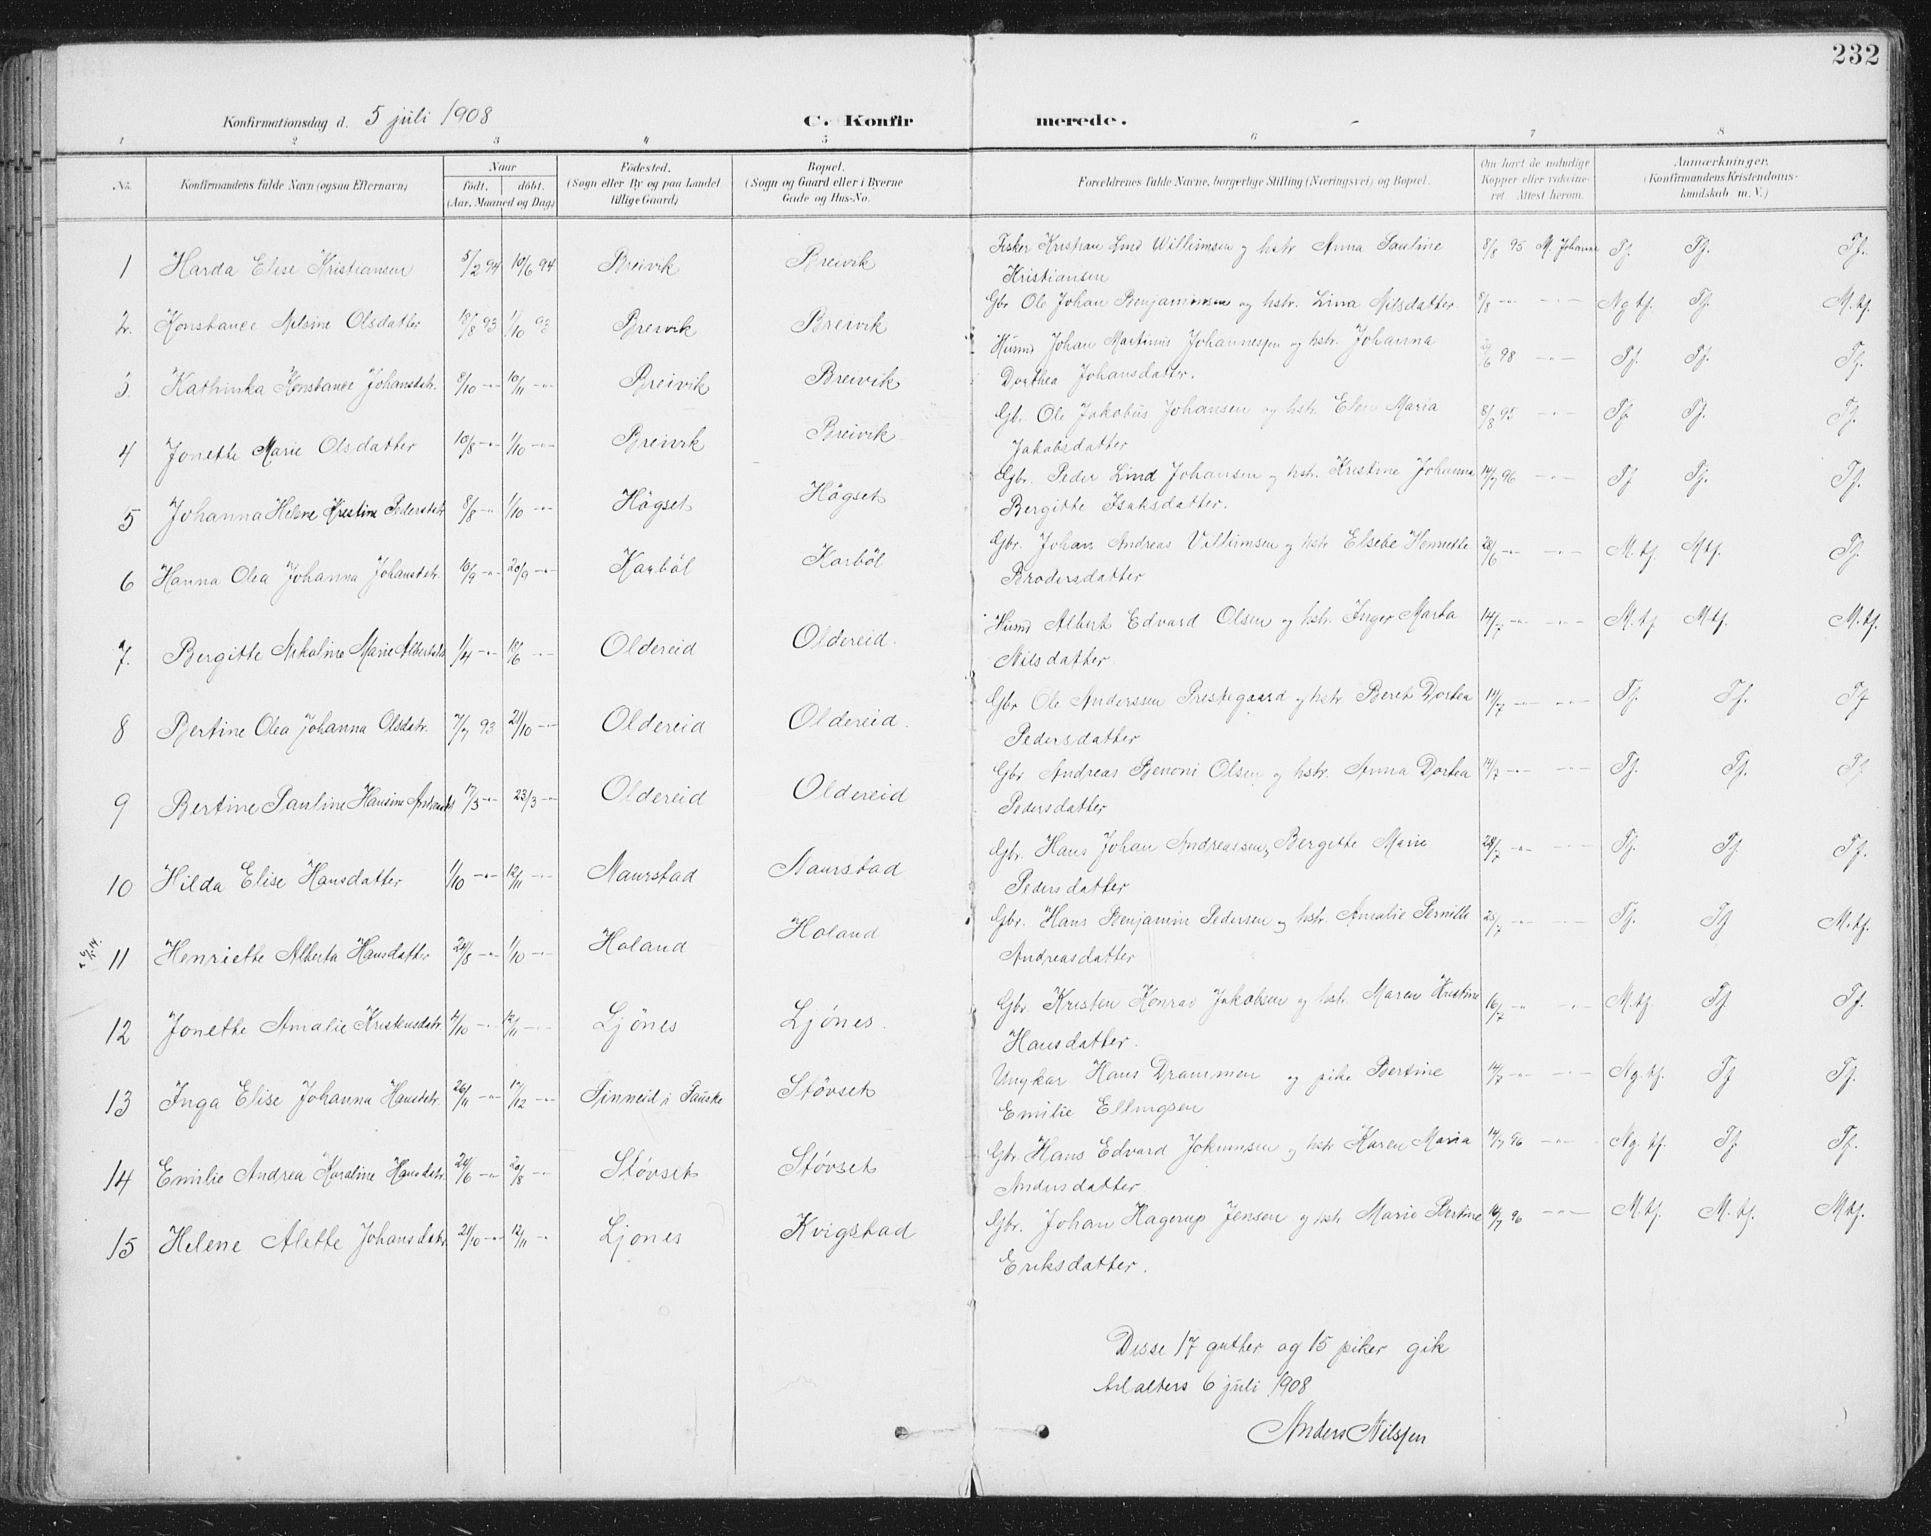 232
Konfirmationsdag d. 5 juli 1908
C. Konfirmerede.
1 2 3 4 5 6 7 8
No. Konfirmandens fulde Navn (ogsaa Efternavn) Naar født. døbt. (Aar, Maaned og Dag) Fødested. (Sogn eller By og paa Landet tillige Gaard) Bopæl. (Sogn og Gaard eller i Byerne Gade og Hus-No. Forældrenes fulde Navne, borgerlige Stilling (Næringsvei) og Bopæl. Om havt de naturlige Kopper eller vaccineret. Attest herom. Anmærkninger. (Konfirmandens Kristendomskundskab m. V.)
1 Harda Elise Kristiansen 5/2 94 10/6 94 Breivik Breivik Fisker Kristian Lind Willumsen og hstr. Anna Pauline Kristiansen 8/8 95 M. Johanne Tf. Tf. Tf.
2. Konstance Nilsine Olsdatter 18/8 93 1/10 93 Breivik Breivik Gbr Ole Johan Benjaminsen og hstr. Lina Nilsdatter. 8/8 -"- -"- Ng tf. Tf. M.tf.
3. Kathinka Konstance Johansdtr. 8/10 -"- 10/11 -"- Breivik Breivik Husmd Johan Martinus Johannessen og hstr. Johanna Dorthea Johansdatter. 98 -"- Tf. Tf. Tf.
4 Jonette Marie Olsdatter 10/8 -"- 1/10 -"- Breivik Breivik Gbr. Ole Jakobus Johansen og hstr. Elen Maria Jakobsdatter 8/8 95 -"- Tf. Tf. Tf.
5 Johanna Helene Kristine Pedersdtr 8/8 -"- 1/10 -"- Högset Högset Gbr. Peder Lind Johansen og hstr. Kristine Johanna Bergitte Isaksdatter. 14/7 96 -"- Tf Tf. Tf.
6 Hanna Olea Johanna Johansdtr. 10/9 -"- 20/9 -"- Karböl Karböl Gbr. Johan Andreas Villumsen og hstr Elsebe Henrette Brodersdatter 26/6 -"- -"- M.tf. Mtf. Tf.
7. Bergitte Nikoline Marie Albertsdtr 1/4 -"- 18/6 -"- Oldereid Oldereid. Husmd Albert Edvard Olsen og hstr. Inger Marta Nilsdatter. 14/7 -"- -"- M.tf M.tf. M.tf.
8 Bertine Olea Johanna Olsdtr. 7/7 93 21/10 -"- Oldereid Oldereid. Gbr Ole Anderssen Prestegaard og hstr Beret Dortea Pedersdatter 14/7 -"- -"- Tf. Tf. Tf
9 Bertine Pauline Hansine 17/3 -"- 23/3 -"- Oldereid Oldereid Gbr Andreas Benoni Olsen og hstr. Anna Dortea Pedersdatter 14/7 -"- -"- Tf. Tf. Tf
10 Hilda Elise Hansdatter 1/10 -"- 12/11 -"- Naurstad Naurstad Gbr. Hans Johan Andreassen, Bergitte Marie Pedersdatter 28/7 -"- -"- Tf. Tf. Tf.
11 Henriette Alberta Hansdatter 24/8 -"- 1/10 -"- Holand Holand Gbr. Hans Benjamin Pedersen og hstr. Amalie Pernille Andreasdatter 23/7 -"- -"- Tf. Tf M.tf.
12 Jonette Amalie Kristensdatr. 4/10 -"- 12/11 -"- Ljönes Ljönes. Gbr Kristen Konrad Jakobsen og hstr. Maren Kristine Hansdatter. 16/7 -"- -"- M.tf Tf Tf.
13 Inga Elise Johanna Hansdtr. 26/11 -"- 17/12 -"- Finneid i Fauske Støvset Ungkar Hans Drammen og pike Bertine Emilie Ellingsen 14/7 -"- -"- Ng.tf. Tf Tf.
14 Emilie Andrea Karoline Hansdtr. 24/6 -"- 2/8 -"- Støvset Støvset Gbr Hans Edvard Jokumsen og hstr Karen Maria Andersdatter 14/7 96 -"- Ng. tf. Tf Tf.
15 Helene Alette Johansdatr 21/10 -"- 12/11 -"- Ljönes Kvigstad Gbr. Johan Hagerup Jensen og hstr Marie Bertine Eriksdatter. 14/7 96 -"- M.tf. M.tf. Mtf.
Disse 17 gutter og 15 piker gik
til alters 6 juli 1908
Anders Nilssen